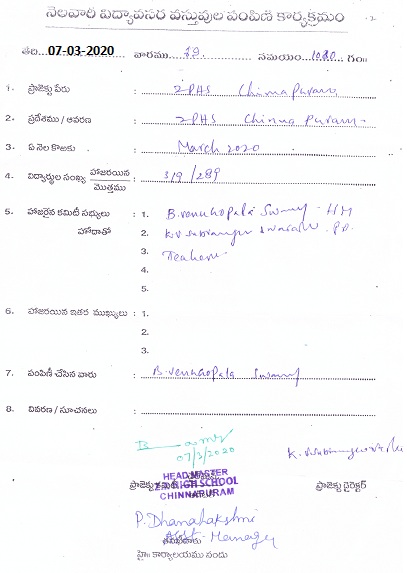 నెలవారీ విద్యావసర వస్తువుల పంపిణి కార్యక్రమం
తేది 07-03-2020 వారము సమయం 1030 గం॥
1. ప్రాజెక్టు పేరు : ZPHS Chinnapuram
2. ప్రదేశము / ఆవరణ : ZPHS Chinna Puram
3. ఏ నెల కొఱకు : March 2020
4. విద్యార్థుల సంఖ్య హాజరయిన / మొత్తము : 319 / 289
5. హాజరైన కమిటీ సభ్యులు : 1. B.venuGopala Swamy - HM
హోదాతో 2. K.V
3. Teachers
4.
5.
6. హాజరయిన ఇతర ముఖ్యులు : 1.
2.
3.
7. పంపిణీ చేసిన వారు : B.venuGopala Swamy
8. వివరణ / సూచనలు :
07/3/2020
HEADMASTER
ప్రాజెక్టు HIGH SCHOOL ప్రాజెక్టు డైరెక్టర్
CHINNAPURAM
P. Dhanalakshmi
Asst. Manager
హై॥ కార్యాలయము నందు